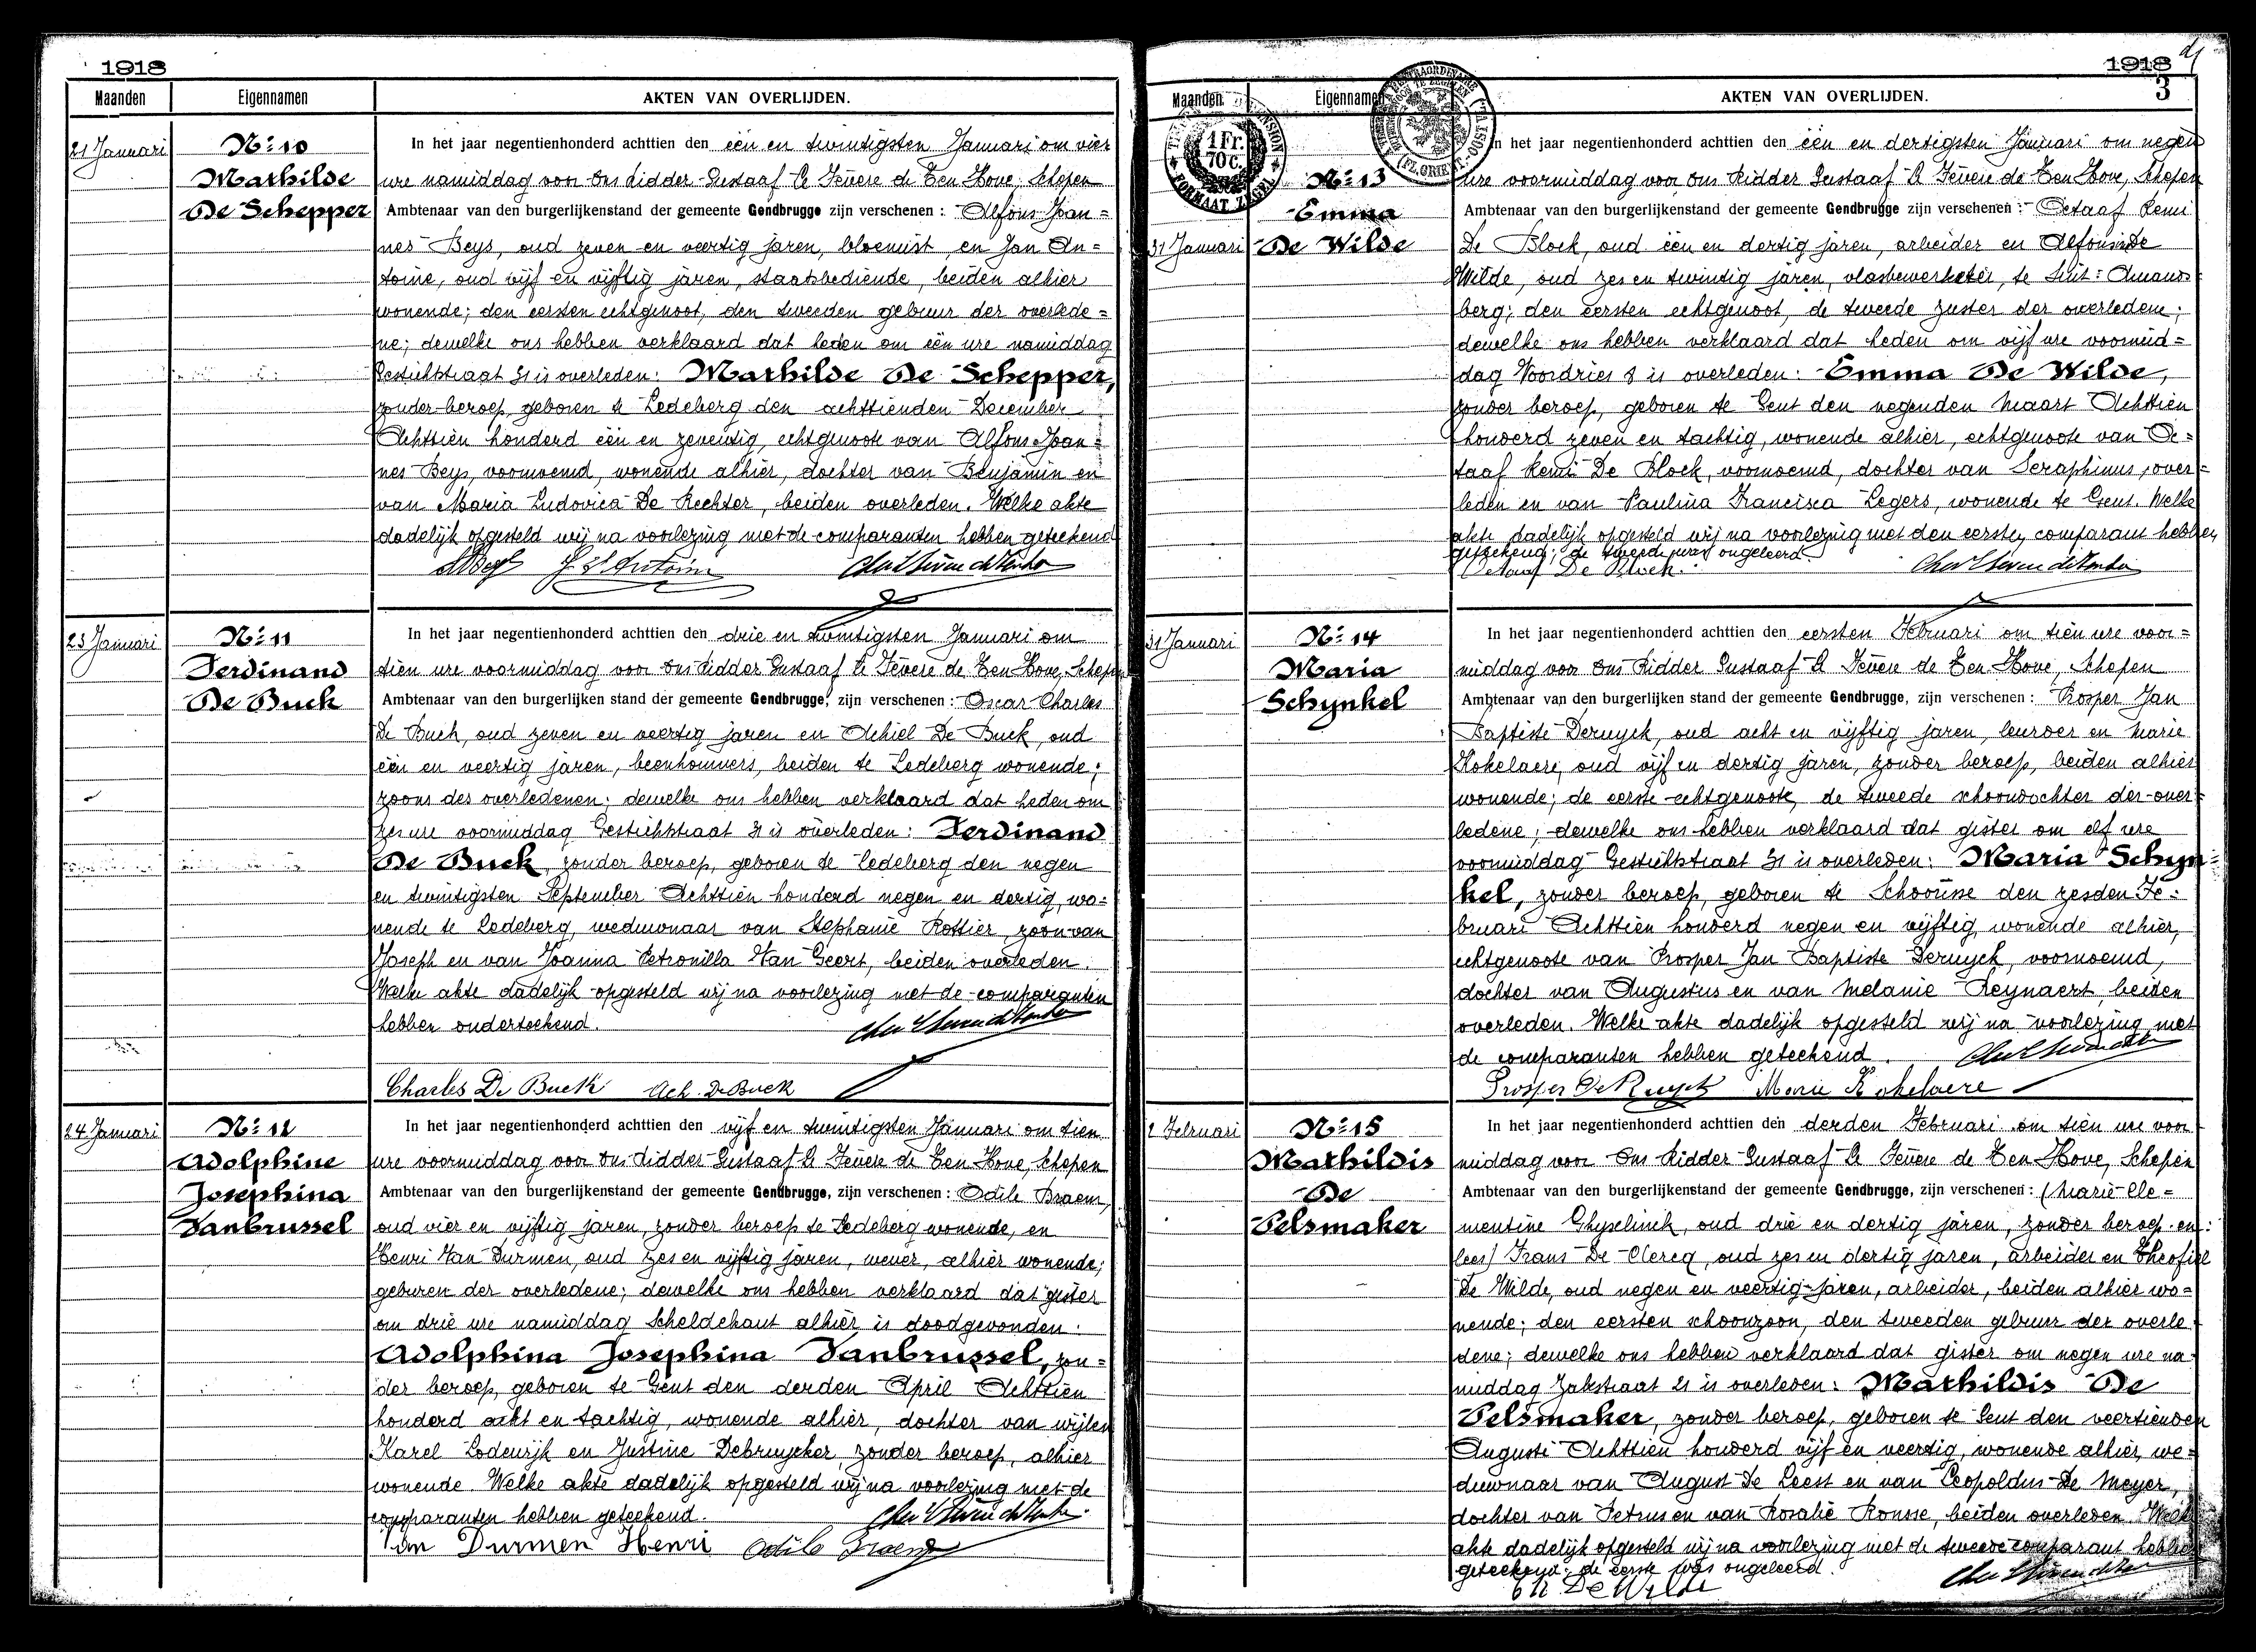 1918
Maanden Eigennamen AKTEN VAN OVERLIJDEN.
21 Januari
Nr 10
Mathilde
De Schepper
In het jaar negentienhonderd achttien den één en twintigsten Januari om vier
ure namiddag voor Ons Ridder Gustaaf Le Fevere de Ten Hove, Schepen
Ambtenaar van den burgerlijkenstand der gemeente Gendbrugge zijn verschenen : Alfons Joan=
nes Beys, oud zeven en veertig jaren, bloemist, en Jan An=
toine, oud vijf en vijftig jaren, staatsbediende, beiden alhier
wonende; den eersten echtgenoot, den tweeden gebuur der overlede=
ne; dewelke ons hebben verklaard dat heden om één ure namiddag
Gestichtstraat 31 is overleden: Mathilde De Schepper,
zonder beroep, geboren te Ledeberg den achttienden December
Achttien honderd één en zeventig, echtgenoote van Alfons Joan=
nes Beys, voornoemd, wonende alhier, dochter van Benjamin en
van Maria Ludovica De Rechter, beiden overleden. Welke akte
dadelijk opgesteld wij na voorlezing met de comparanten hebben geteekend
23 Januari
Nr 11
Ferdinand
De Buck
In het jaar negentienhonderd achttien den drie en twintigsten Januari om
tien ure voormiddag voor Ons Ridder Gustaaf Le Fevere de Ten Hove, Schepen
Ambtenaar van den burgerlijken stand der gemeente Gendbrugge, zijn verschenen : Oscar Charles
De Buck, oud zeven en veertig jaren en Achiel De Buck, oud
één en veertig jaren, beenhouwers, beiden te Ledeberg wonende;
zoons des overledenen; dewelke ons hebben verklaard dat heden om
zes ure voormiddag Gestichtstraat 31 is overleden: Ferdinand
De Buck, zonder beroep, geboren te Ledeberg den negen
en twintigsten September Achttien honderd negen en dertig, wo=
nende te Ledeberg, weduwnaar van Stephanie Rottier, zoon van
Joseph en van Joanna Petronilla Van Geert, beiden overleden.
Welke akte dadelijk opgesteld wij na voorlezing met de comparanten
hebben onderteekend.
Charles De Buck Ach. De Buck
24 Januari
Nr 12
Adolphine
Josephina
Vanbrussel
In het jaar negentienhonderd achttien den vijf en twintigsten Januari om tien
ure voormiddag voor Ons Ridder Gustaaf Le Fevere de Ten Hove, Schepen
Ambtenaar van den burgerlijkenstand der gemeente Gendbrugge, zijn verschenen : Odile Braem,
oud vier en vijftig jaren, zonder beroep te Ledeberg wonende, en
Henri Van Durmen, oud zes en vijftig jaren, wever, alhier wonende;
geburen der overledene; dewelke ons hebben verklaard dat gister
om drie ure namiddag Scheldekant alhier is doodgevonden:
Adolphina Josephina Vanbrussel, zon=
der beroep, geboren te Gent den derden April Achttien
honderd acht en tachtig, wonende alhier, dochter van wijlen
Karel Lodewijk en Justine Debruycker, zonder beroep, alhier
wonende. Welke akte dadelijk opgesteld wij na voorlezing met de
comparanten hebben geteekend.
Van Durmen Henri Odile Braem
1918
3
Maanden Eigennamen AKTEN VAN OVERLIJDEN.
1 Fr.
70 c.
FORMAAT ZEGEL
31 Januari
Nr 13
Emma
De Wilde
In het jaar negentienhonderd achttien den één en dertigsten Januari om negen
ure voormiddag voor Ons Ridder Gustaaf Le Fevere de Ten Hove, Schepen
Ambtenaar van den burgerlijkenstand der gemeente Gendbrugge zijn verschenen : Octaaf Remi
De Block, oud één en dertig jaren, arbeider en Alfonsine De
Wilde, oud zes en twintig jaren, vlasbewerkster, te Sint-Amands=
berg; den eersten echtgenoot, de tweede zuster der overledene;
dewelke ons hebben verklaard dat heden om vijf ure voormid=
dag Voordries 8 is overleden: Emma De Wilde,
zonder beroep, geboren te Gent den negenden Maart Achttien
honderd zeven en tachtig, wonende alhier, echtgenoote van Oc=
taaf Remi De Block, voornoemd, dochter van Seraphinus, over=
leden en van Paulina Francisca Legers, wonende te Gent. Welke
akte dadelijk opgesteld wij na voorlezing met den eersten comparant hebben
geteekend; de tweede was ongeleerd.
Octaaf De Block
31 Januari
Nr 14
Maria
Schynkel
In het jaar negentienhonderd achttien den eersten Februari om tien ure voor=
middag voor Ons Ridder Gustaaf Le Fevere de Ten Hove, Schepen
Ambtenaar van den burgerlijken stand der gemeente Gendbrugge, zijn verschenen : Prosper Jan
Baptiste Deruyck, oud acht en vijftig jaren, leurder en Marie
Kokelaere, oud vijf en dertig jaren, zonder beroep, beiden alhier
wonende; de eerste echtgenoot, de tweede schoondochter der over=
ledene; dewelke ons hebben verklaard dat gister om elf ure
voormiddag Gestichtstraat 31 is overleden: Maria Schyn=
kel, zonder beroep, geboren te Schoorisse den zesden Fe=
bruari Achttien honderd negen en vijftig, wonende alhier,
echtgenoote van Prosper Jan Baptiste Deruyck, voornoemd,
dochter van Augustus en van Melanie Reynaert, beiden
overleden. Welke akte dadelijk opgesteld wij na voorlezing met
de comparanten hebben geteekend.
Prosper De Ruyck Marie Kokelaere
2 Februari
Nr 15
Mathildis
De
Pelsmaker
In het jaar negentienhonderd achttien den derden Februari om tien ure voor
middag voor Ons Ridder Gustaaf Le Fevere de Ten Hove, Schepen
Ambtenaar van den burgerlijkenstand der gemeente Gendbrugge, zijn verschenen : (Marie Cle=
mentine Ghyselinck, oud drie en dertig jaren, zonder beroep en:
lees) Frans De Clercq, oud zes en dertig jaren, arbeider en Theofiel
De Wilde, oud negen en veertig jaren, arbeider, beiden alhier wo=
nende; den eersten schoonzoon, den tweeden gebuur der overle
dene; dewelke ons hebben verklaard dat gister om negen ure na
middag Zakstraat 21 is overleden: Mathildis De
Pelsmaker, zonder beroep, geboren te Gent den veertienden
Augusti Achttien honderd vijf en veertig, wonende alhier, we=
duwnaar van August De Leest en van Leopoldus De Meyer,
dochter van Petrus en van Rosalie Ronsse, beiden overleden. Welke
akte dadelijk opgesteld wij na voorlezing met de tweede comparant hebben
geteekend; de eerste was ongeleerd.
De Wilde